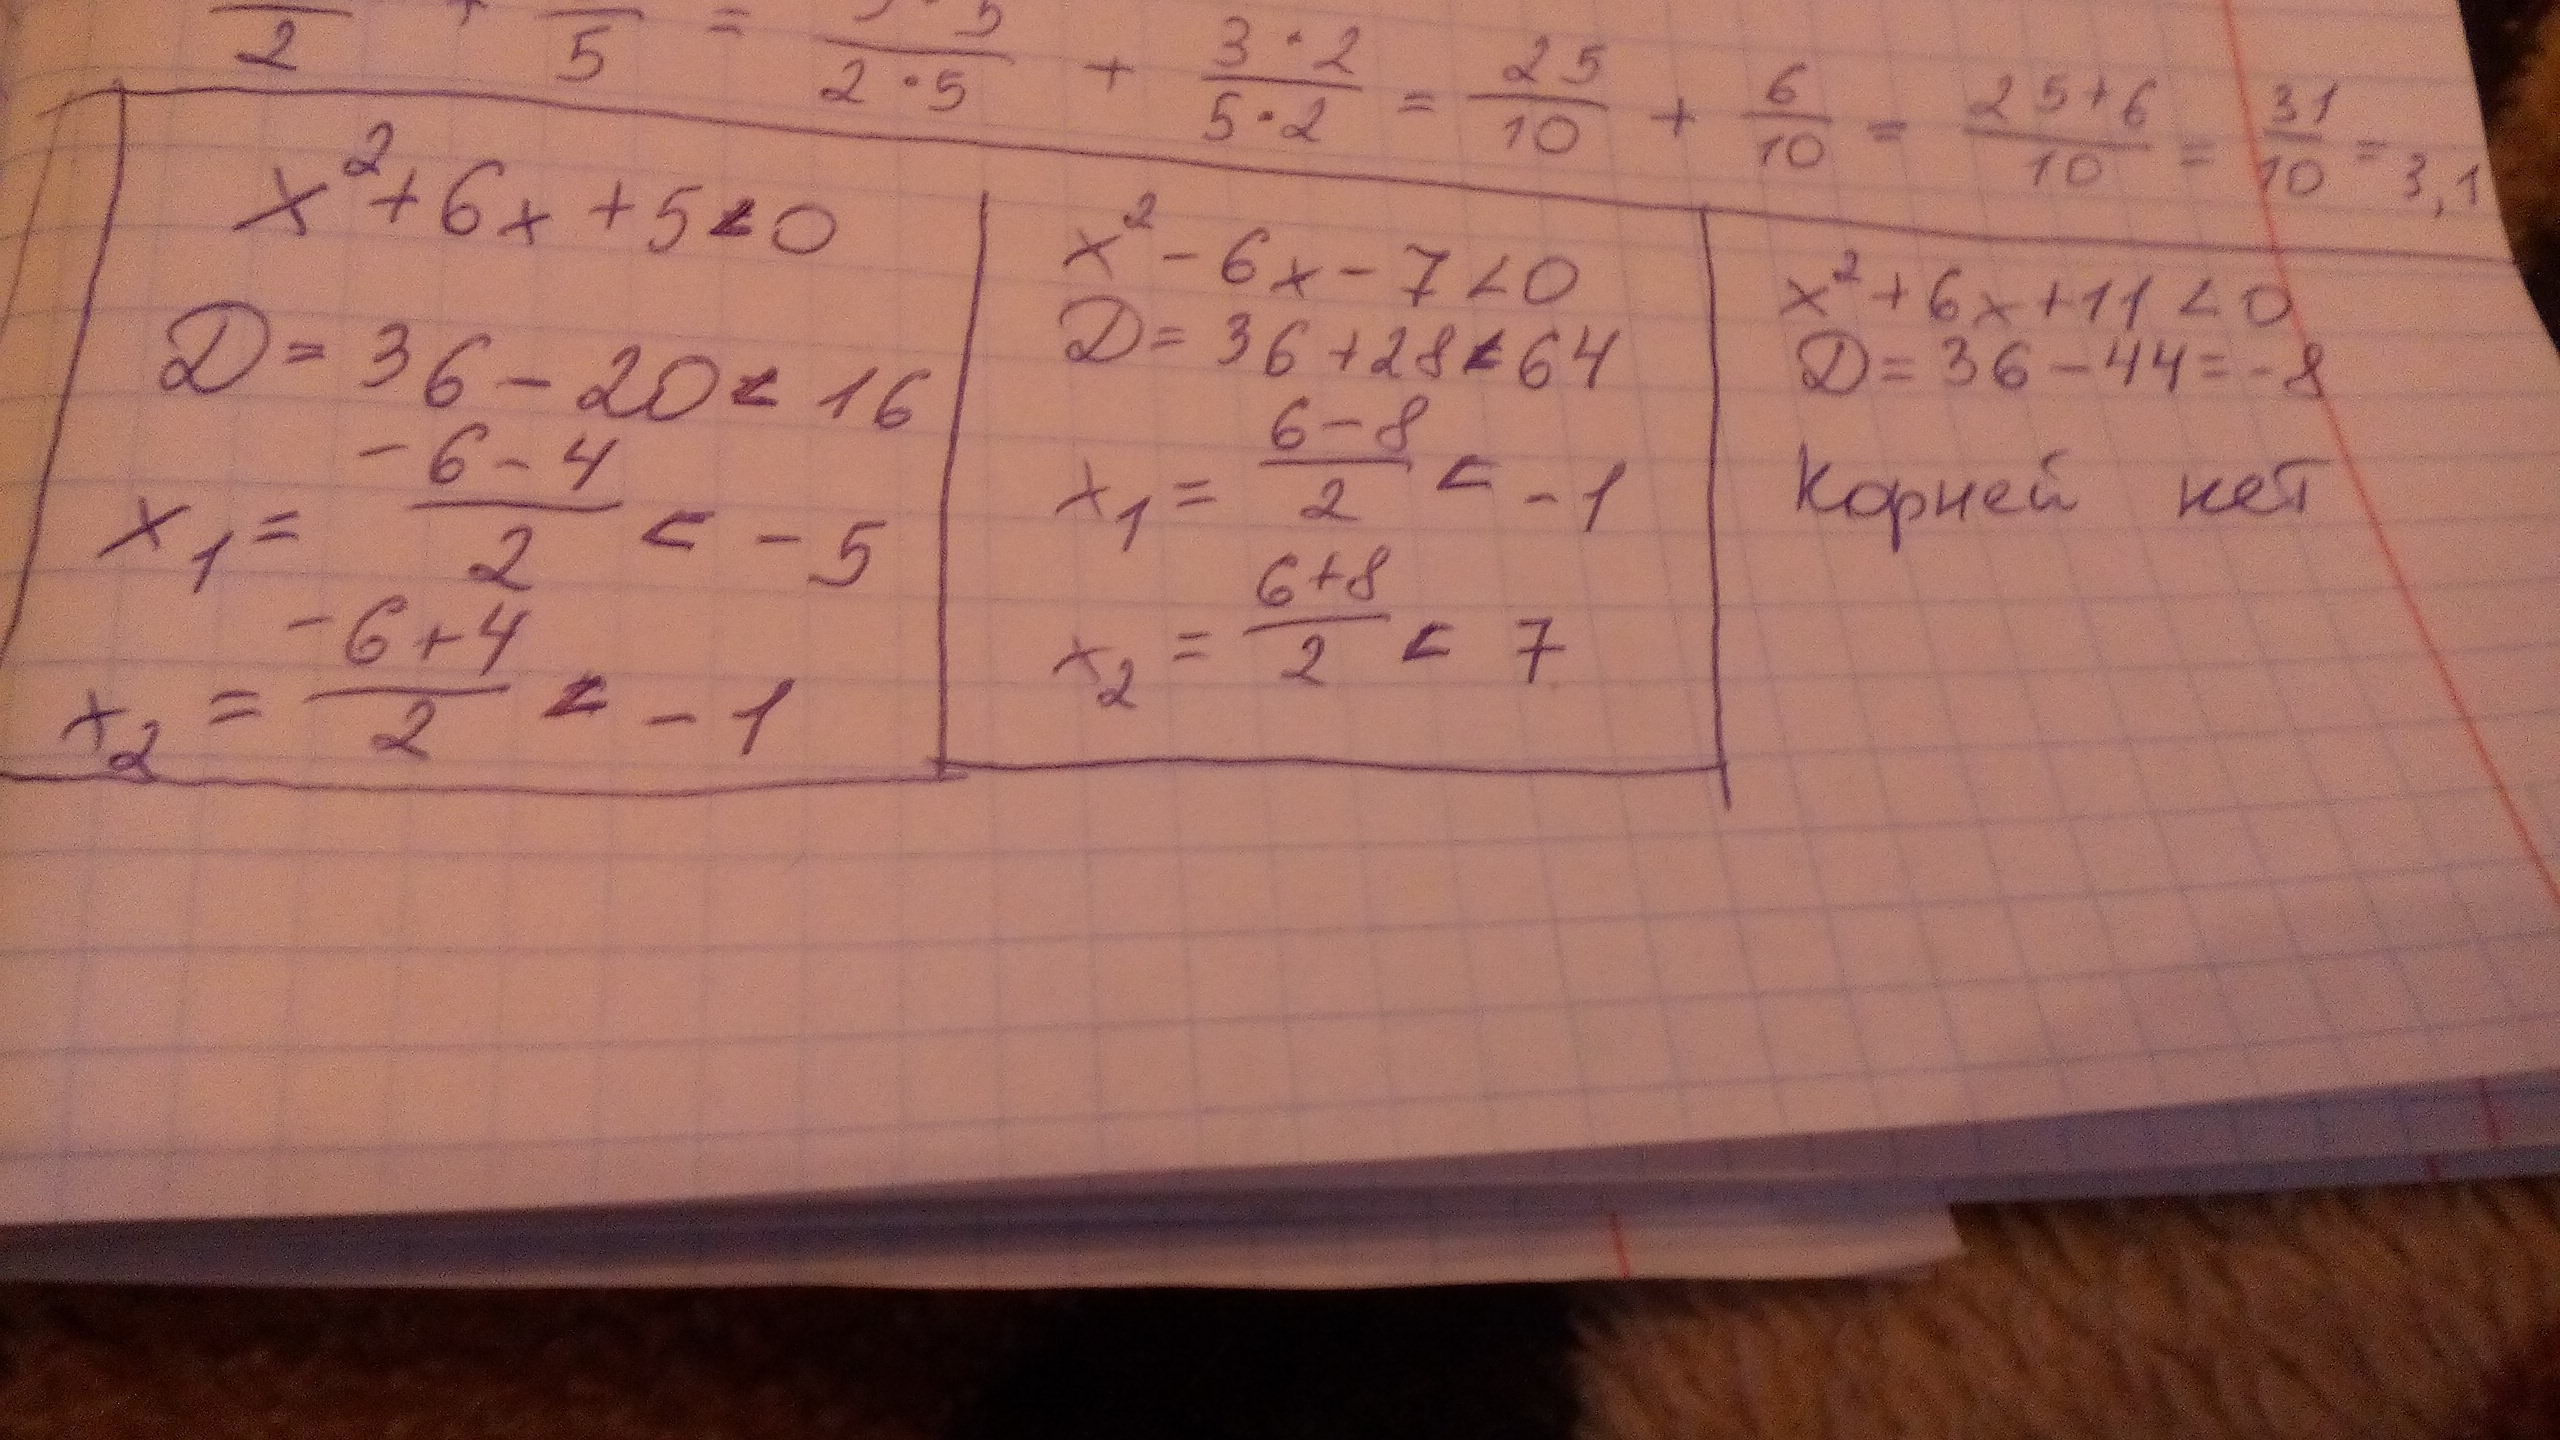 2 + 5 = 2·5 + 3·2/5·2 = 25/10 + 6/10 = 25+6/10 = 31/10 = 3,1
x²+6x+5<0
D=36-20<16
x₁= -6-4/2 < -5
x₂ = -6+4/2 < -1
x²-6x-7<0
D=36+28<64
x₁= 6-8/2 < -1
x₂= 6+8/2 < 7
x²+6x+11<0
D=36-44=-8
Корней нет